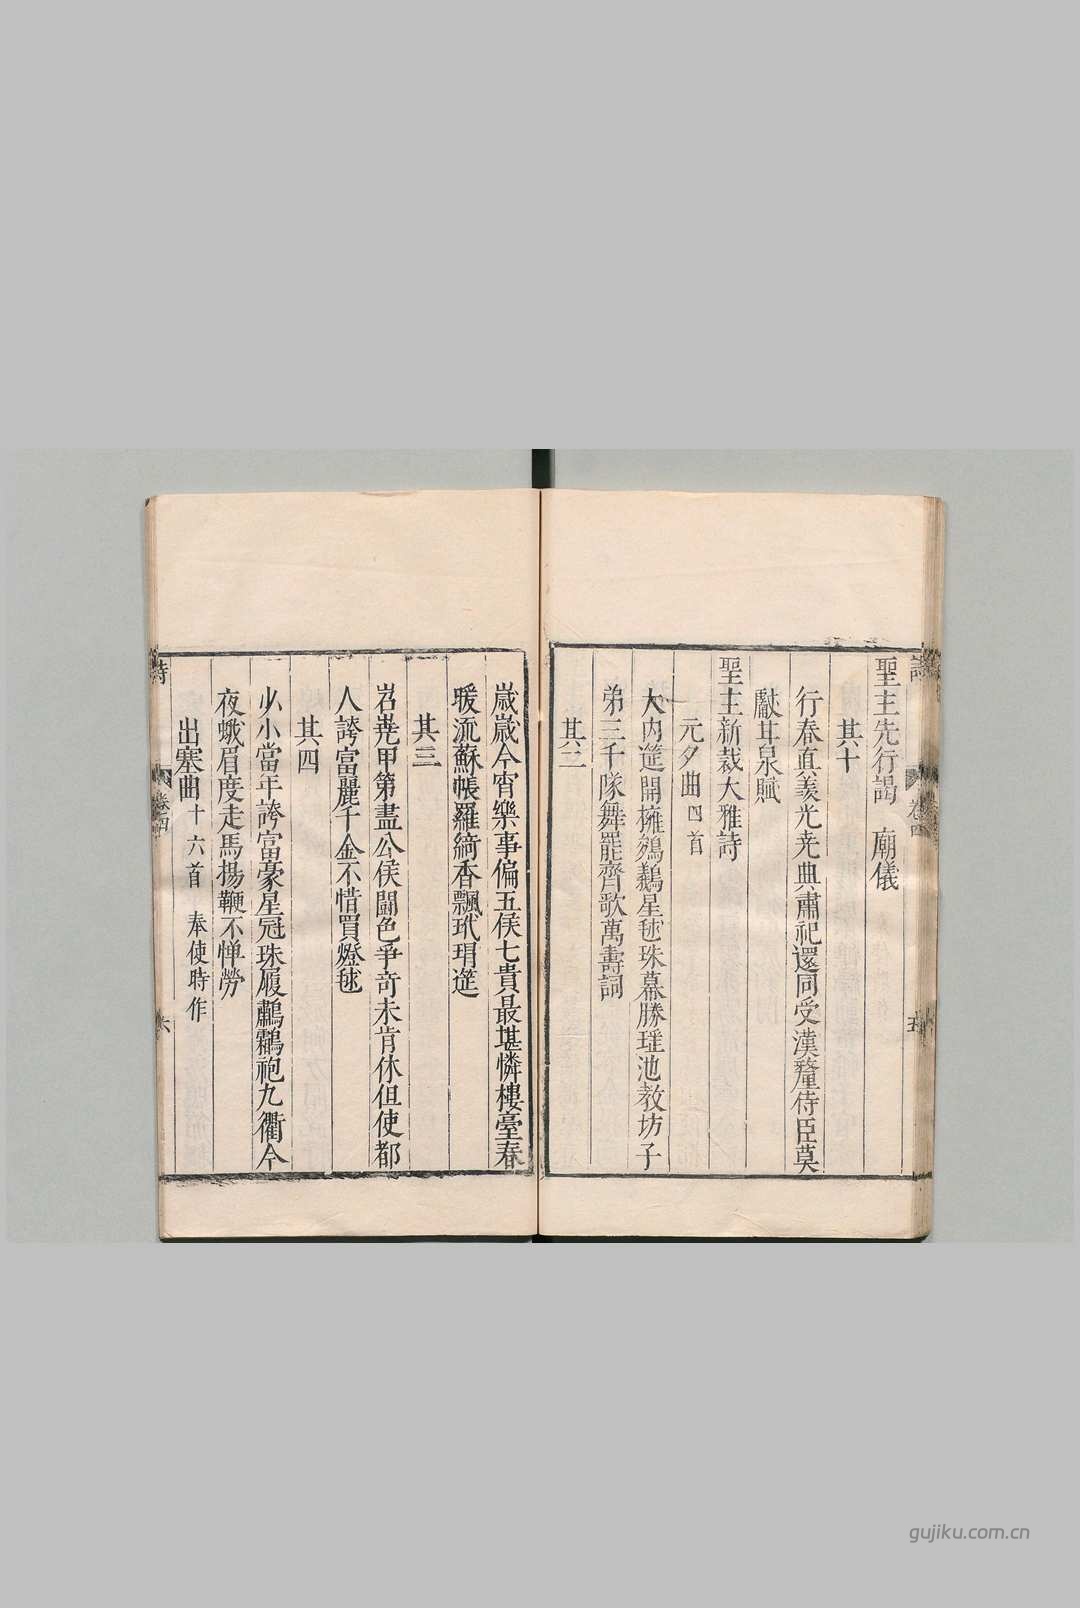 聖主先行謁 廟儀
其十
行春直羨光堯典肅祀還同受漢釐侍臣莫
獻甘泉賦
聖主新裁大雅詩
元夕曲四首
大内筵開擁鵷鵝星毬珠幕勝瑤池教坊子
弟三千隊舞罷齊歌萬壽詞
其二
歲歲今宵樂事偏五侯七貴最堪憐樓臺春
暖流蘇帳羅綺香飄玳瑁筵
其三
岧嶤甲第盡公侯鬭色爭奇未肯休但使都
人誇富麗千金不惜買燈毬
其四
少小當年誇富豪星冠珠履鷫鸘袍九衢今
夜蛾眉度走馬揚鞭不憚勞
出塞曲十六首 奉使時作
卷四
五
卷四
六
gujiku.com.cn